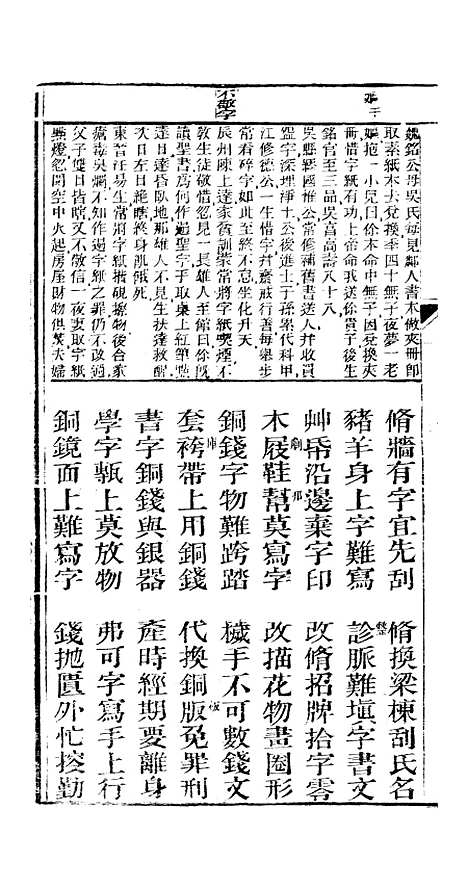 不敬字
魏銘公母吳氏每見鄰人書本做夾冊卽
取素紙本去兌換季四十無子夜夢一老
嫗抱一小兒曰你本命中無子因兌換夾
冊惜字紙有功上帝命我送你貴子後生
銘官至三品吳富高壽八十八
吳縣蔣國祚公常修補舊書送人幷收買
磁字深理淨土公後進士子孫累代科甲
江修德公一生惜字幷齋戒行善每舉步
常看碎字如此至終不怠坐化升天
辰州陳上達家舊訓蒙常將字紙喫煙不
敎生徒敬惜忽見一長雄人至館曰你旣
讀聖書爲何作過聖字手取桌上紅筆點
達目達昏臥地那雄人不見生扶達救醒
次日左目絕瞎終身飢餓死
東晉汪易生常將字紙擦硯擦物後合家
瘋毒臭爛不知作過字紙之罪仍不改過
父子雙目皆瞎又不敬信一夜要取字紙
燃燈忽聞空中火起房屋財物俱焚夫婦
脩牆有字宜先刮　脩換梁棟刮氏名
豬羊身上字難寫　診脈難塡字書文
艸帋沿邊棄字印　改脩招牌拾字零
木屐鞋幫莫寫字　改描花物畫圈形
銅錢字物難跨踏　穢手不可數錢文
套袴帶上用銅錢　代換銅版免罪刑
書字銅錢與銀器　產時經期要離身
學字甎上莫放物　弗可字寫手上行
銅鏡面上難寫字　錢拋匱外忙撿勤